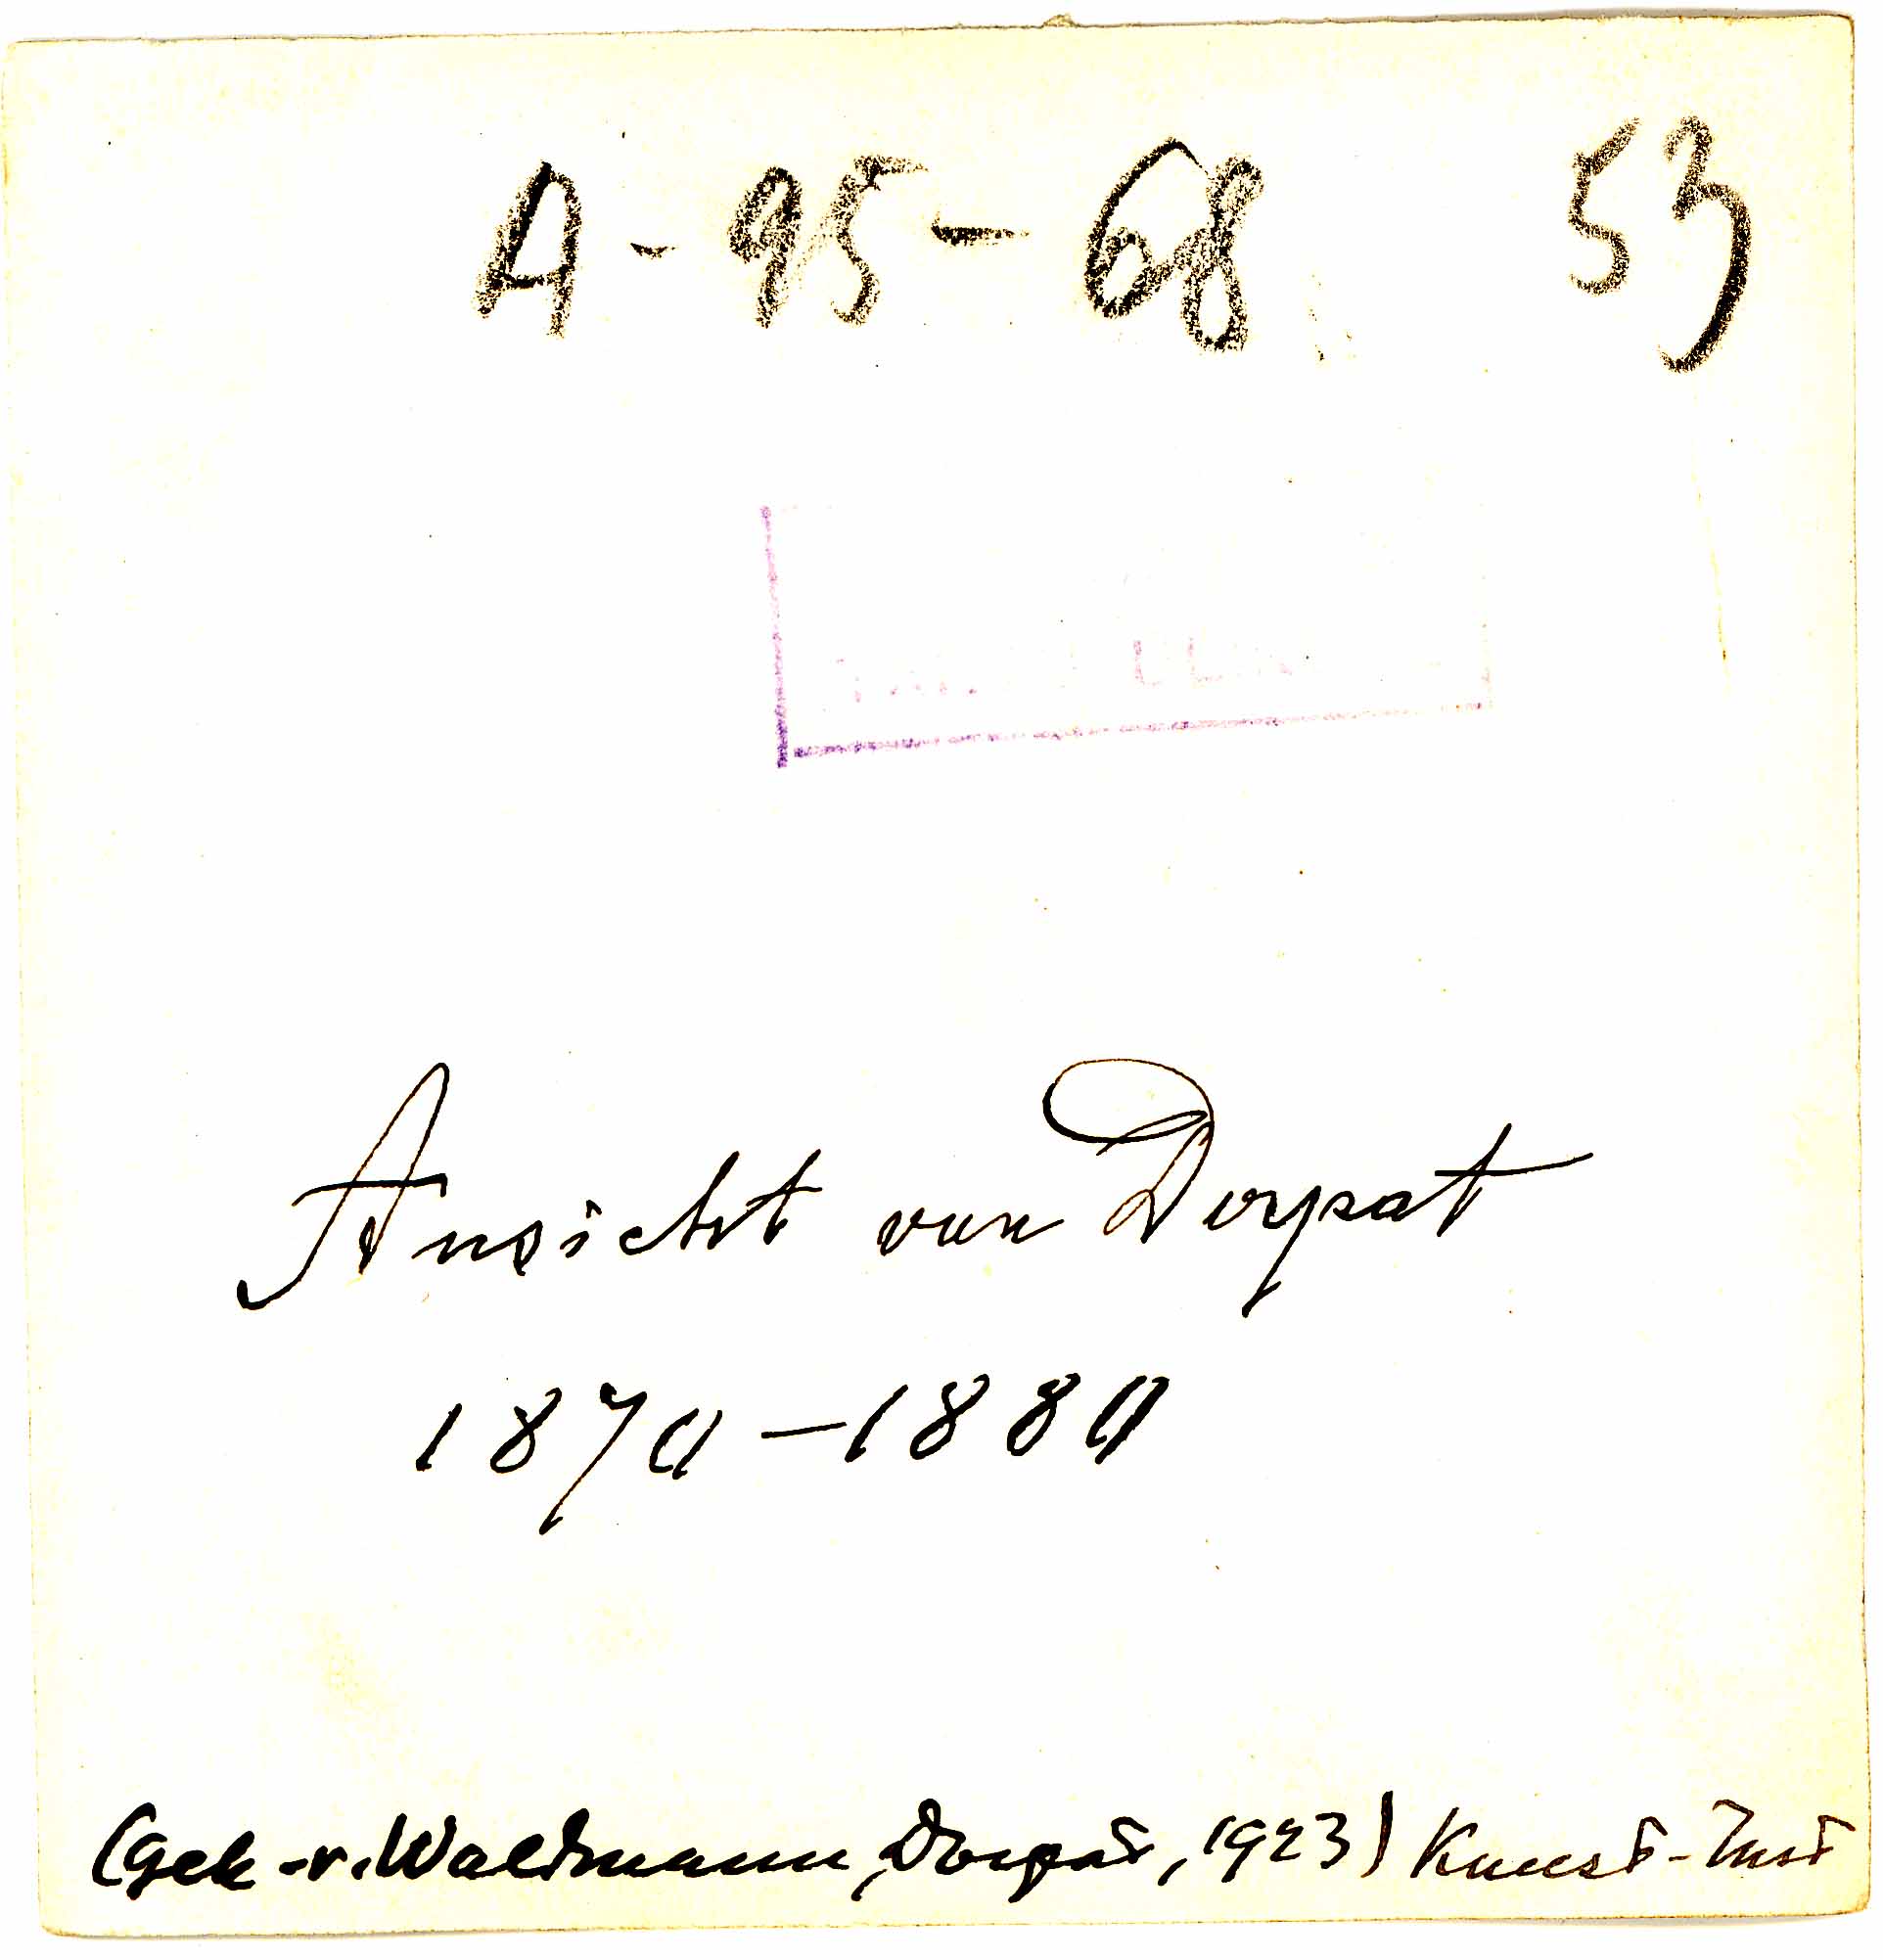 A-95-68 53
Ansicht von Dorpat
1870-1880
(Gek. v. Waldmann, Dorpat, 1923) Kunst-Inst